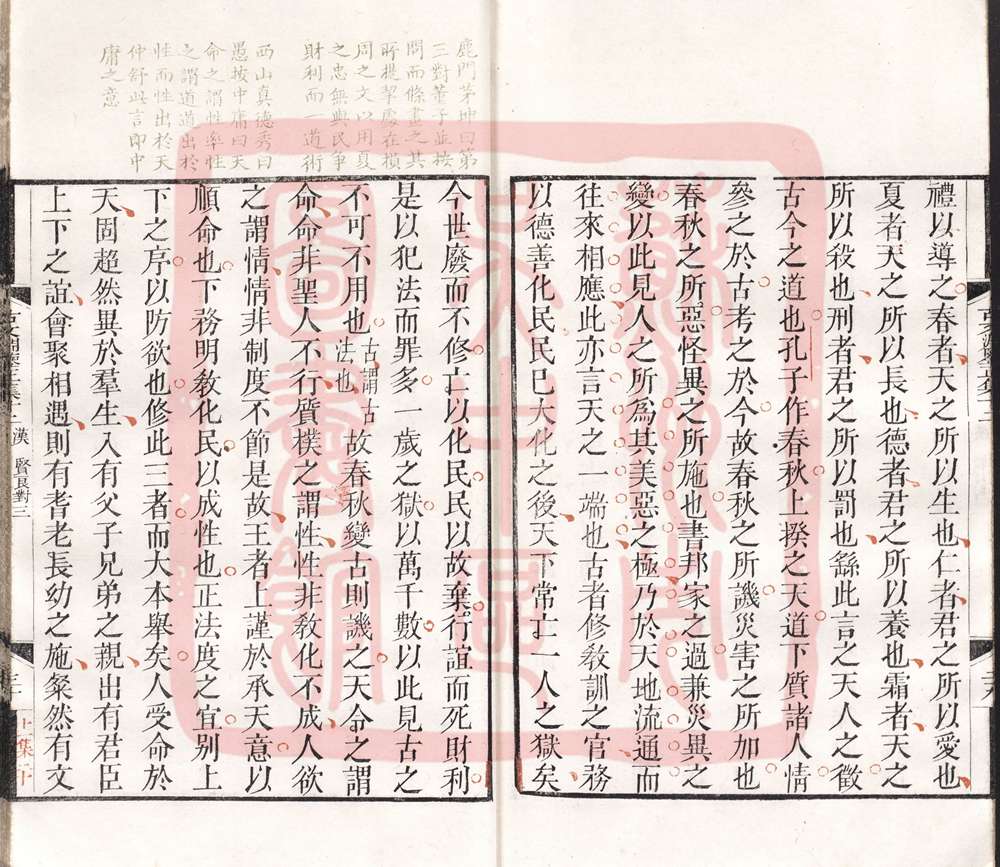 禮以導之春者天之所以生也仁者君之所以愛也
夏者天之所以長也德者君之所以養也霜者天之
所以殺也刑者君之所以罰也繇此言之天人之徵
古今之道也孔子作春秋上揆之天道下質諸人情
參之於古考之於今故春秋之所譏災害之所加也
春秋之所惡怪異之所施也書邦家之過兼災異之
變以此見人之所為其美惡之極乃於天地流通而
往來相應此亦言天之一端也古者修教訓之官務
以德善化民民已大化之後天下常亡一人之獄矣
鹿門茅坤曰第
三對董子並按
問而條畫之其
所提挈處在損
周之文以用夏
之忠無與民爭
財利而一道術
西山真德秀曰
愚按中庸曰天
命之謂性率性
之謂道道出於
性而性出於天
仲舒此言即中
庸之意
今世廢而不修亡以化民民以故棄行誼而死財利
是以犯法而罪多一歲之獄以萬千數以此見古之
不可不用也古謂古法也故春秋變古則譏之天令之謂
命命非聖人不行質樸之謂性性非教化不成人欲
之謂情情非制度不節是故王者上謹於承天意以
順命也下務明教化民以成性也正法度之宜別上
下之序以防欲也修此三者而大本舉矣人受命於
天固超然異於羣生入有父子兄弟之親出有君臣
上下之誼會聚相遇則有耆老長幼之施粲然有文
漢 賢良對三